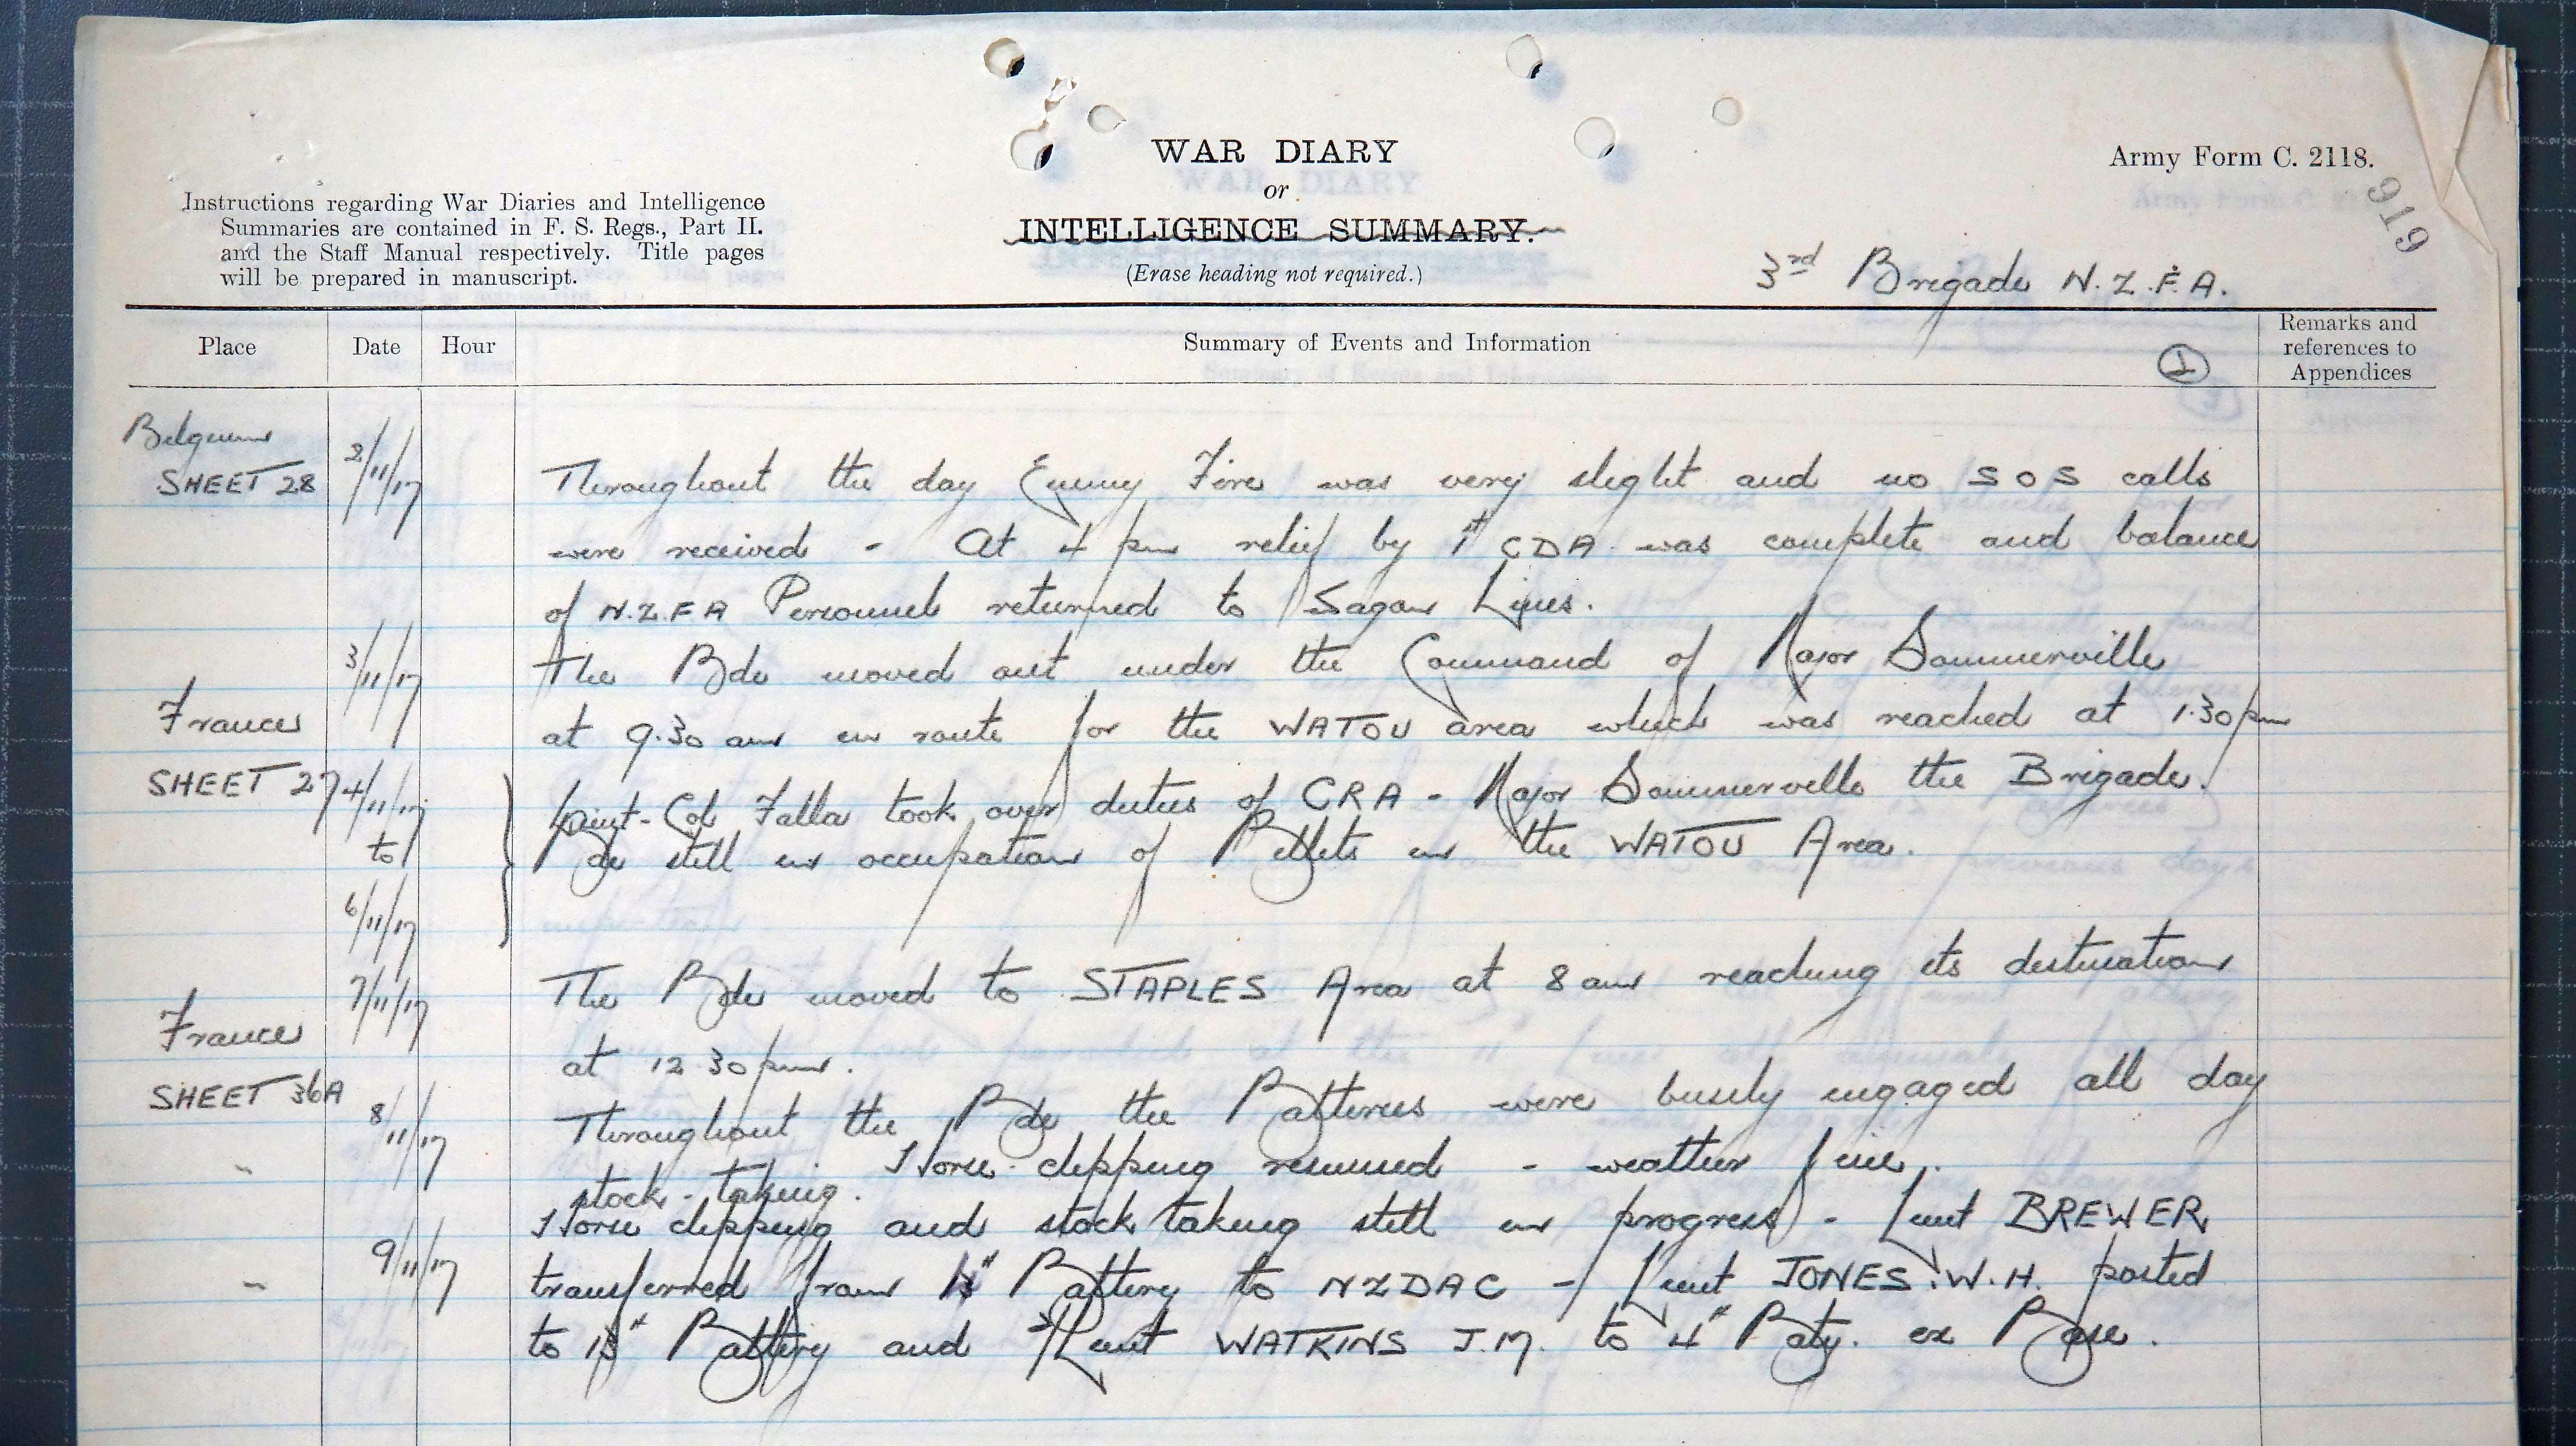 WAR DIARY
or
INTELLIGENCE SUMMARY.
(Erase heading not required.)
Army Form C. 2118.
919
Instructions regarding War Diaries and Intelligence
Summaries are contained in F. S. Regs., Part II.
and the Staff Manual respectively. Title pages
will be prepared in manuscript.
3rd Brigade N.Z.F.A.
Place Date Hour Summary of Events and Information Remarks and references to Appendices
Belgium
SHEET 28 2/11/17 Throughout the day Enemy Fire was very slight and no SOS calls
were received - At 4 pm relief by 1st CDA was complete and balance
of N.Z.F.A Personnel returned to Wagon Lines.
3/11/17 The Bde moved out under the Command of Major Sommerville
France at 9.30 am en route for the WATOU area which was reached at 1.30 pm
SHEET 27 4/11/17 Lieut-Col Falla took over duties of CRA - Major Sommerville the Brigade.
to Bde still in occupation of Billets in the WATOU Area.
6/11/17
7/11/17 The Bde moved to STAPLES Area at 8 am reaching its destination
France at 12 30 pm.
SHEET 36A 8/11/17 Throughout the Bde the Batteries were busily engaged all day
" stock-taking. Horse-clipping resumed - weather fine.
9/11/17 Horse clipping and stock taking still in progress - Lieut BREWER
" transferred from 13th Battery to NZDAC - Lieut JONES W.H. posted
to 13th Battery and 2/Lieut WATKINS J.M. to 4th Baty. ex Base.